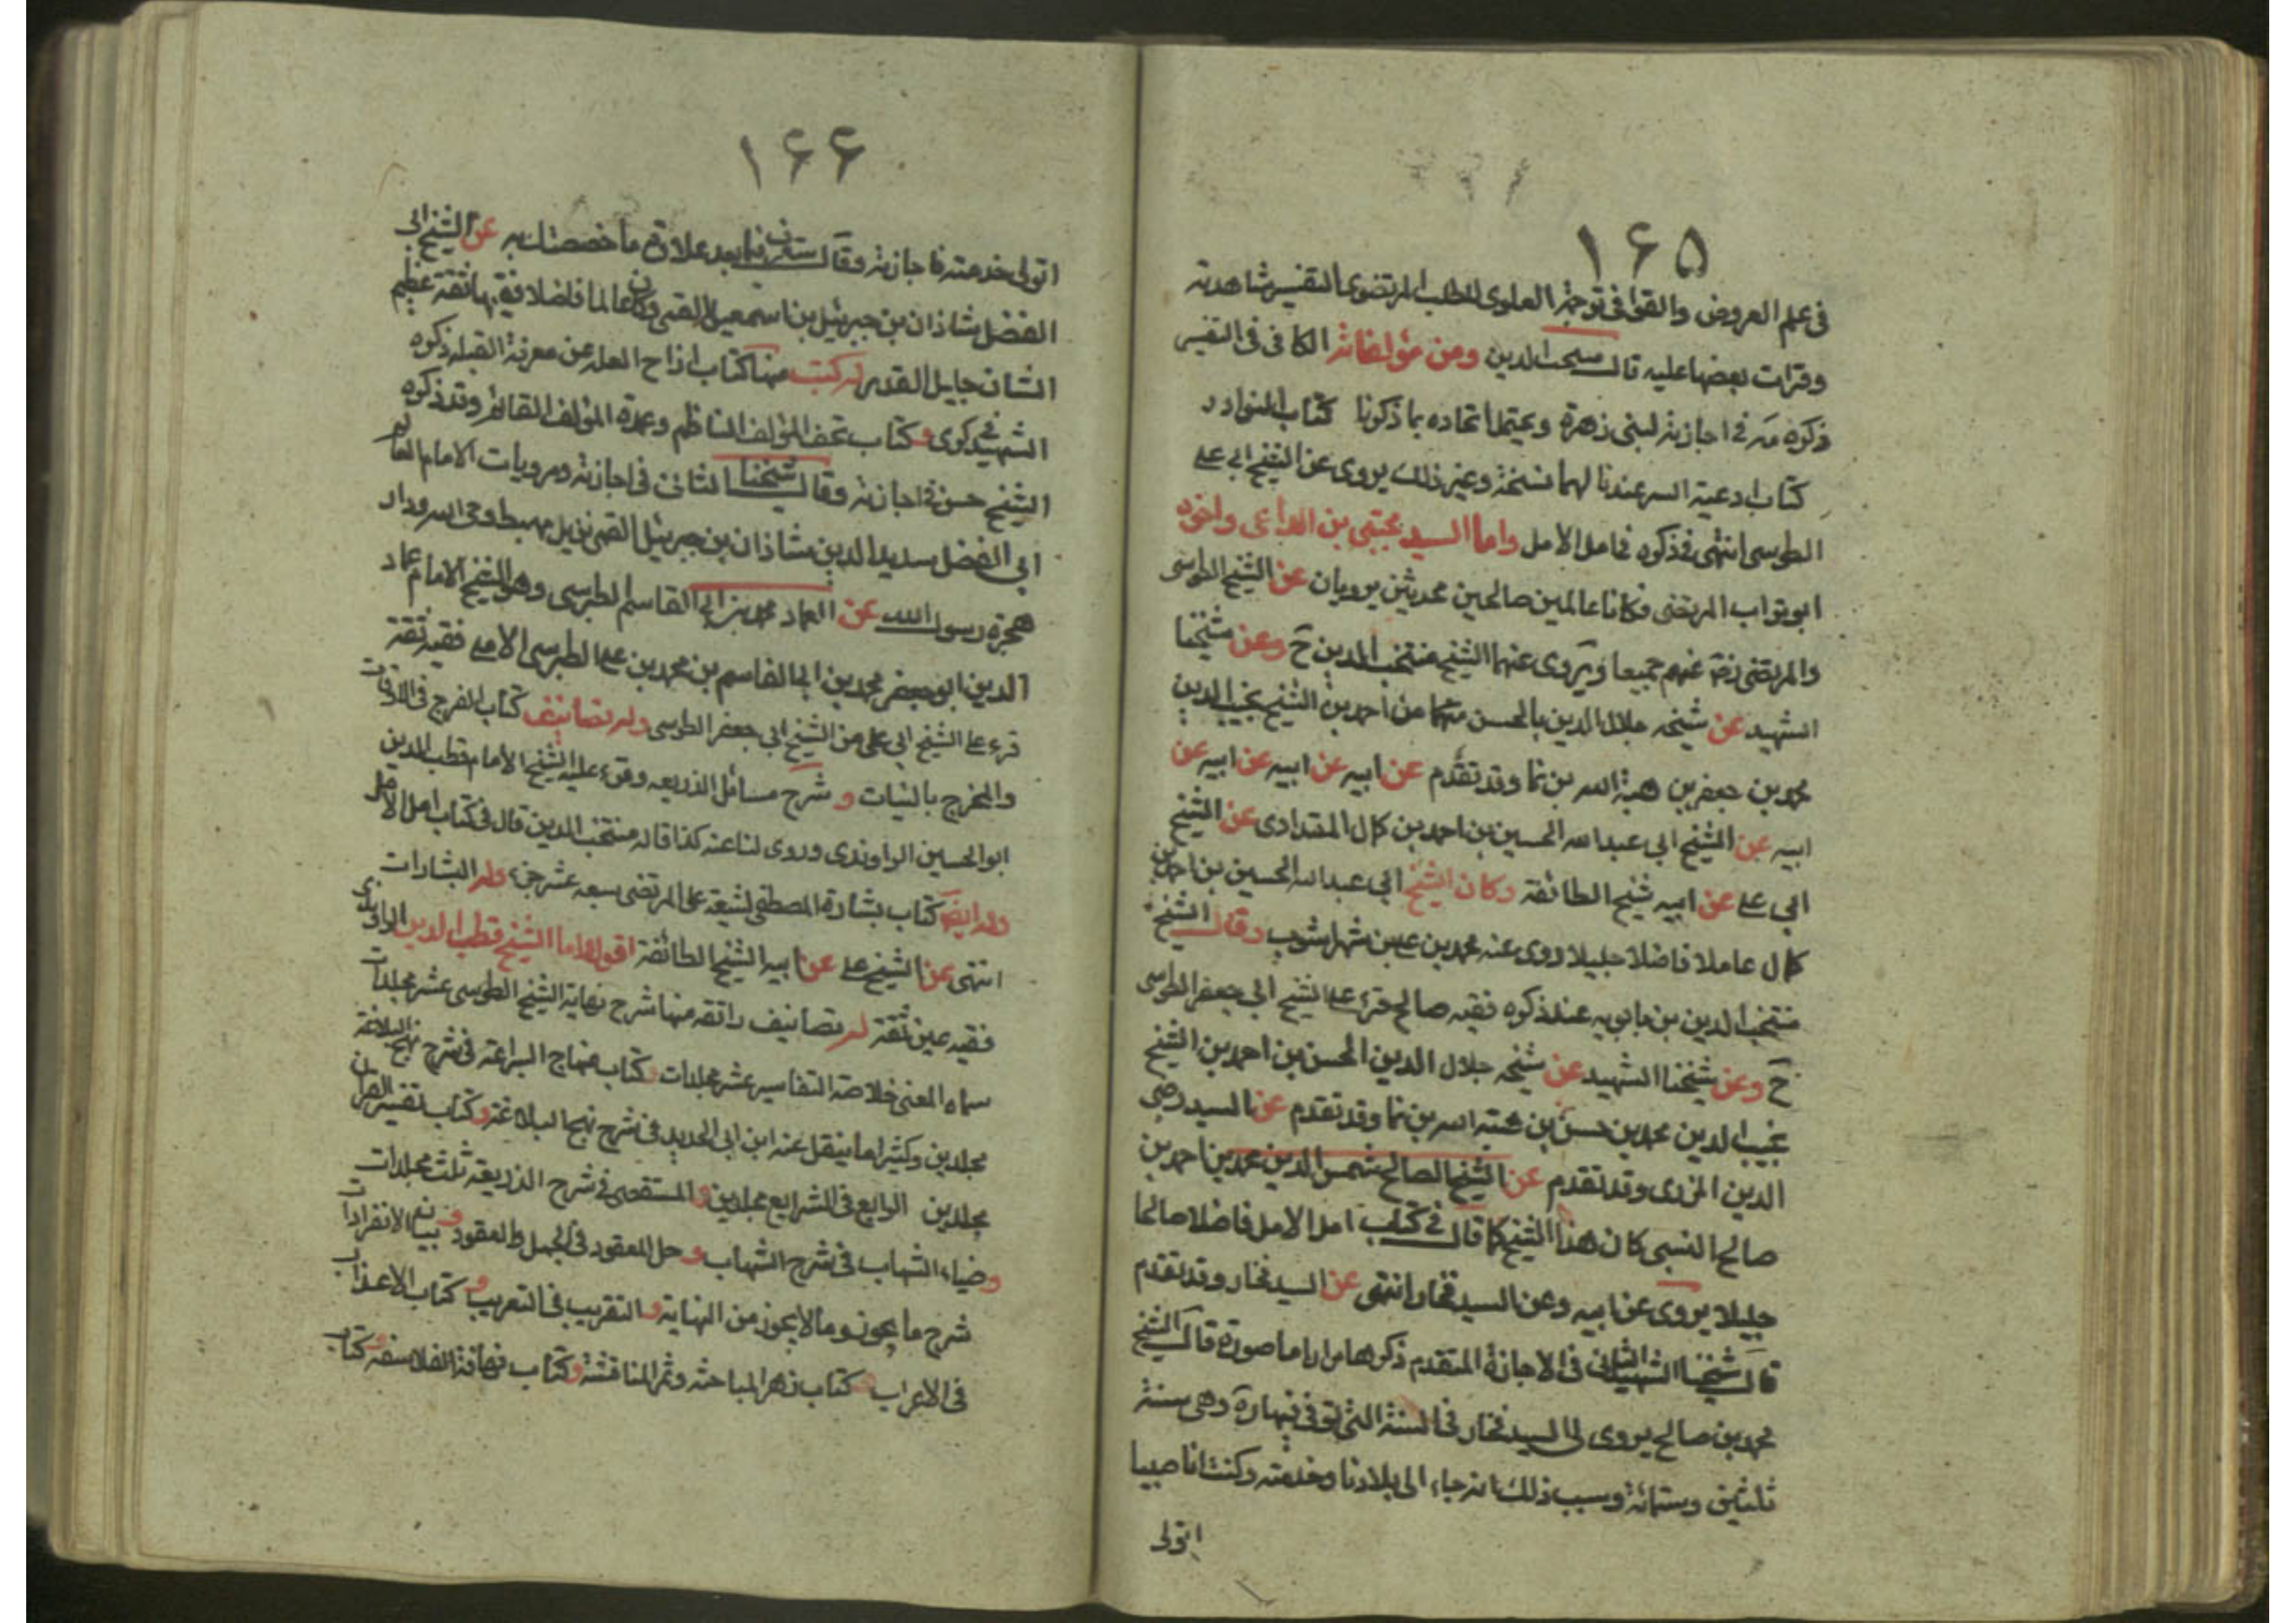 ١۶۵
فى علم العروض والقوافى توجيه العلوى للطب المرتضوى التفسير شاهدته
وقرات بعضها عليه قال منتجب الدين ومن مؤلفاته الكافى فى التفسير
ذكره فى اجازته لبنى زهرة ويحتمل اتحاده بما ذكرنا كتاب النوادر
كتاب ادعية السر عندنا لهما نسخة وغير ذلك يروى عن الشيخ ابى على
الطوسى انتهى ذكره فى امل الامل واما السيد مجتبى بن الداعى واخوه
ابو تراب المرتضى فكانا عالمين صالحين محدثين يرويان عن الشيخ الطوسى
والمرتضى رضى عنهم جميعا ويروى عنهما الشيخ منتجب الدين ح وعن شيخنا
الشهيد عن شيخه جلال الدين بالحسن بن احمد بن الشيخ نجيب الدين
محمد بن جعفر بن هبة الله بن نما وقد تقدم عن ابيه عن ابيه عن ابيه عن
ابيه عن الشيخ ابى عبد الله الحسين بن احمد بن كال المقدادى عن الشيخ
ابى على عن ابيه شيخ الطائفة وكان الشيخ ابى عبد الله الحسين بن احمد بن
كال عاملا فاضلا جليلا روى عنه محمد بن على بن شهراشوب وقال الشيخ
منتجب الدين بن بابويه عند ذكره فقيه صالح قرء على الشيخ ابى جعفر الطوسى
ح وعن شيخنا الشهيد عن شيخه جلال الدين الحسن بن احمد بن الشيخ
نجيب الدين محمد بن حسن بن هبته الله بن نما وقد تقدم عن السيد رضى
الدين الاوى وقد تقدم عن الشيخ الصالح شمس الدين محمد بن احمد بن
صالح السيبى كان هذا الشيخ كما قال فى كتاب امل الامل فاضلا صالحا
جليلا يروى عن ابيه وعن السيد فخار انتهى عن السيد فخار وقد تقدم
قال شيخنا الشهيد الثانى فى الاجازة المتقدم ذكرها مرارا ما صورته قال الشيخ
محمد بن صالح يروى لى السيد فخار فى السنة التى توفى فيها ره وهى سنة
ثلثين وستمائة وسبب ذلك انه جاء الى بلادنا وخدمته وكنت انا صبيا
اتولى
١۶۶
اتولى خدمته فاجازنى وقال ستعرف فيما بعد حلاوة ما خصصتك به عن الشيخ ابى
الفضل شاذان بن جبرئيل بن اسمعيل القمى وكان عالما فاضلا فقيها ثقة عظيم
الشان جليل القدر له كتب منها كتاب ازاح العله عن معرفة القبله ذكره
الشهيد فى ذكرى و كتاب تحف المؤلف الناظم وعمدة المؤلف القائم وقد ذكره
الشيخ حسن فى اجازته وقال شيخنا الثانى فى اجازته ومرويات الامام العالم
ابى الفضل سديد الدين شاذان بن جبرئيل القمى نزيل مهبط وحى الله ودار
هجرة رسول الله عن العماد محمد بن ابى القاسم الطبرسى وهو الشيخ الامام عماد
الدين ابو جعفر محمد بن ابى القاسم بن محمد بن على الطبرسى الاملى فقيه ثقة
قرء على الشيخ ابى على بن الشيخ ابى جعفر الطوسى وله تصانيف كتاب الفرج فى الاوقات
والمخرج بالبينات و شرح مسائل الذريعه وقرء عليه الشيخ الامام قطب الدين
ابو الحسين الراوندى وروى لنا عنه كذا قاله منتجب الدين قال فى كتاب امل الامل
وله ايضا كتاب بشارة المصطفى لشيعة على المرتضى سبعه عشر جزء وله البشارات
انتهى عن الشيخ على عن ابيه الشيخ الطائفة اقول واما الشيخ قطب الدين الراوندى
فقيه عين ثقة له تصانيف رائقه منها شرح نهاية الشيخ الطوسى عشر مجلدات
سماه المغنى خلاصة التفاسير عشر مجلدات و كتاب منهاج البراعة فى شرح نهج البلاغة
مجلدين وكثيرا ما ينقل عنه ابن ابى الحديد فى شرح نهج البلاغة و كتاب تفسير القران
مجلدين الرايع فى الشرايع مجلدين و المستقصى فى شرح الذريعة ثلث مجلدات
و ضياء الشهاب فى شرح الشهاب و حل المعقود فى الجمل والعقود و بيان الانفرادات
شرح ما يجوز وما لا يجوز من النهاية و التقريب فى التعريب و كتاب الاعراب
فى الاعراب كتاب زهر المباحثه وثمر المناقشة و كتاب تهافة الفلاسفه و كتاب